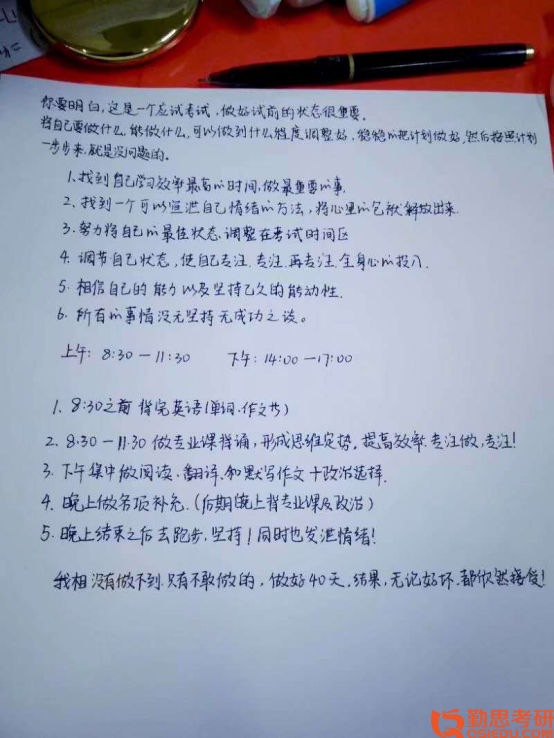 你要明白，这是一个应试考试，做好试前的状态很重要。
将自己要做什么，能做什么，可以做到什么程度调整好，稳稳的把计划做好，然后按照计划
一步步来，就是没问题的。
1. 找到自己学习效率最高的时间，做最重要的事.
2. 找到一个可以宣泄自己情绪的方法，将心里的包袱解放出来.
3. 努力将自己的最佳状态调整在考试时间区
4. 调节自己状态，使自己专注.专注.再专注.全身心的投入.
5. 相信自己的能力以及坚持己久的能动性.
6. 所有的事情没无坚持无成功之谈。
上午：8:30—11:30 下午：14:00—17:00
1. 8:30之前 背完英语(单词.作文书)
2. 8:30—11:30 做专业课背诵，形成思维定势，提高效率.专注做，专注!
3. 下午集中做阅读.翻译.和默写作文+政治选择.
4. 晚上做各项补充.(后期晚上背专业课及政治)
5. 晚上结束之后去跑步，坚持!同时也发泄情绪!
我相 没有做不到.只有不敢做的，做好40天.结果，无论好坏.都欣然接受!
勤思考研
QSIEDU.COM